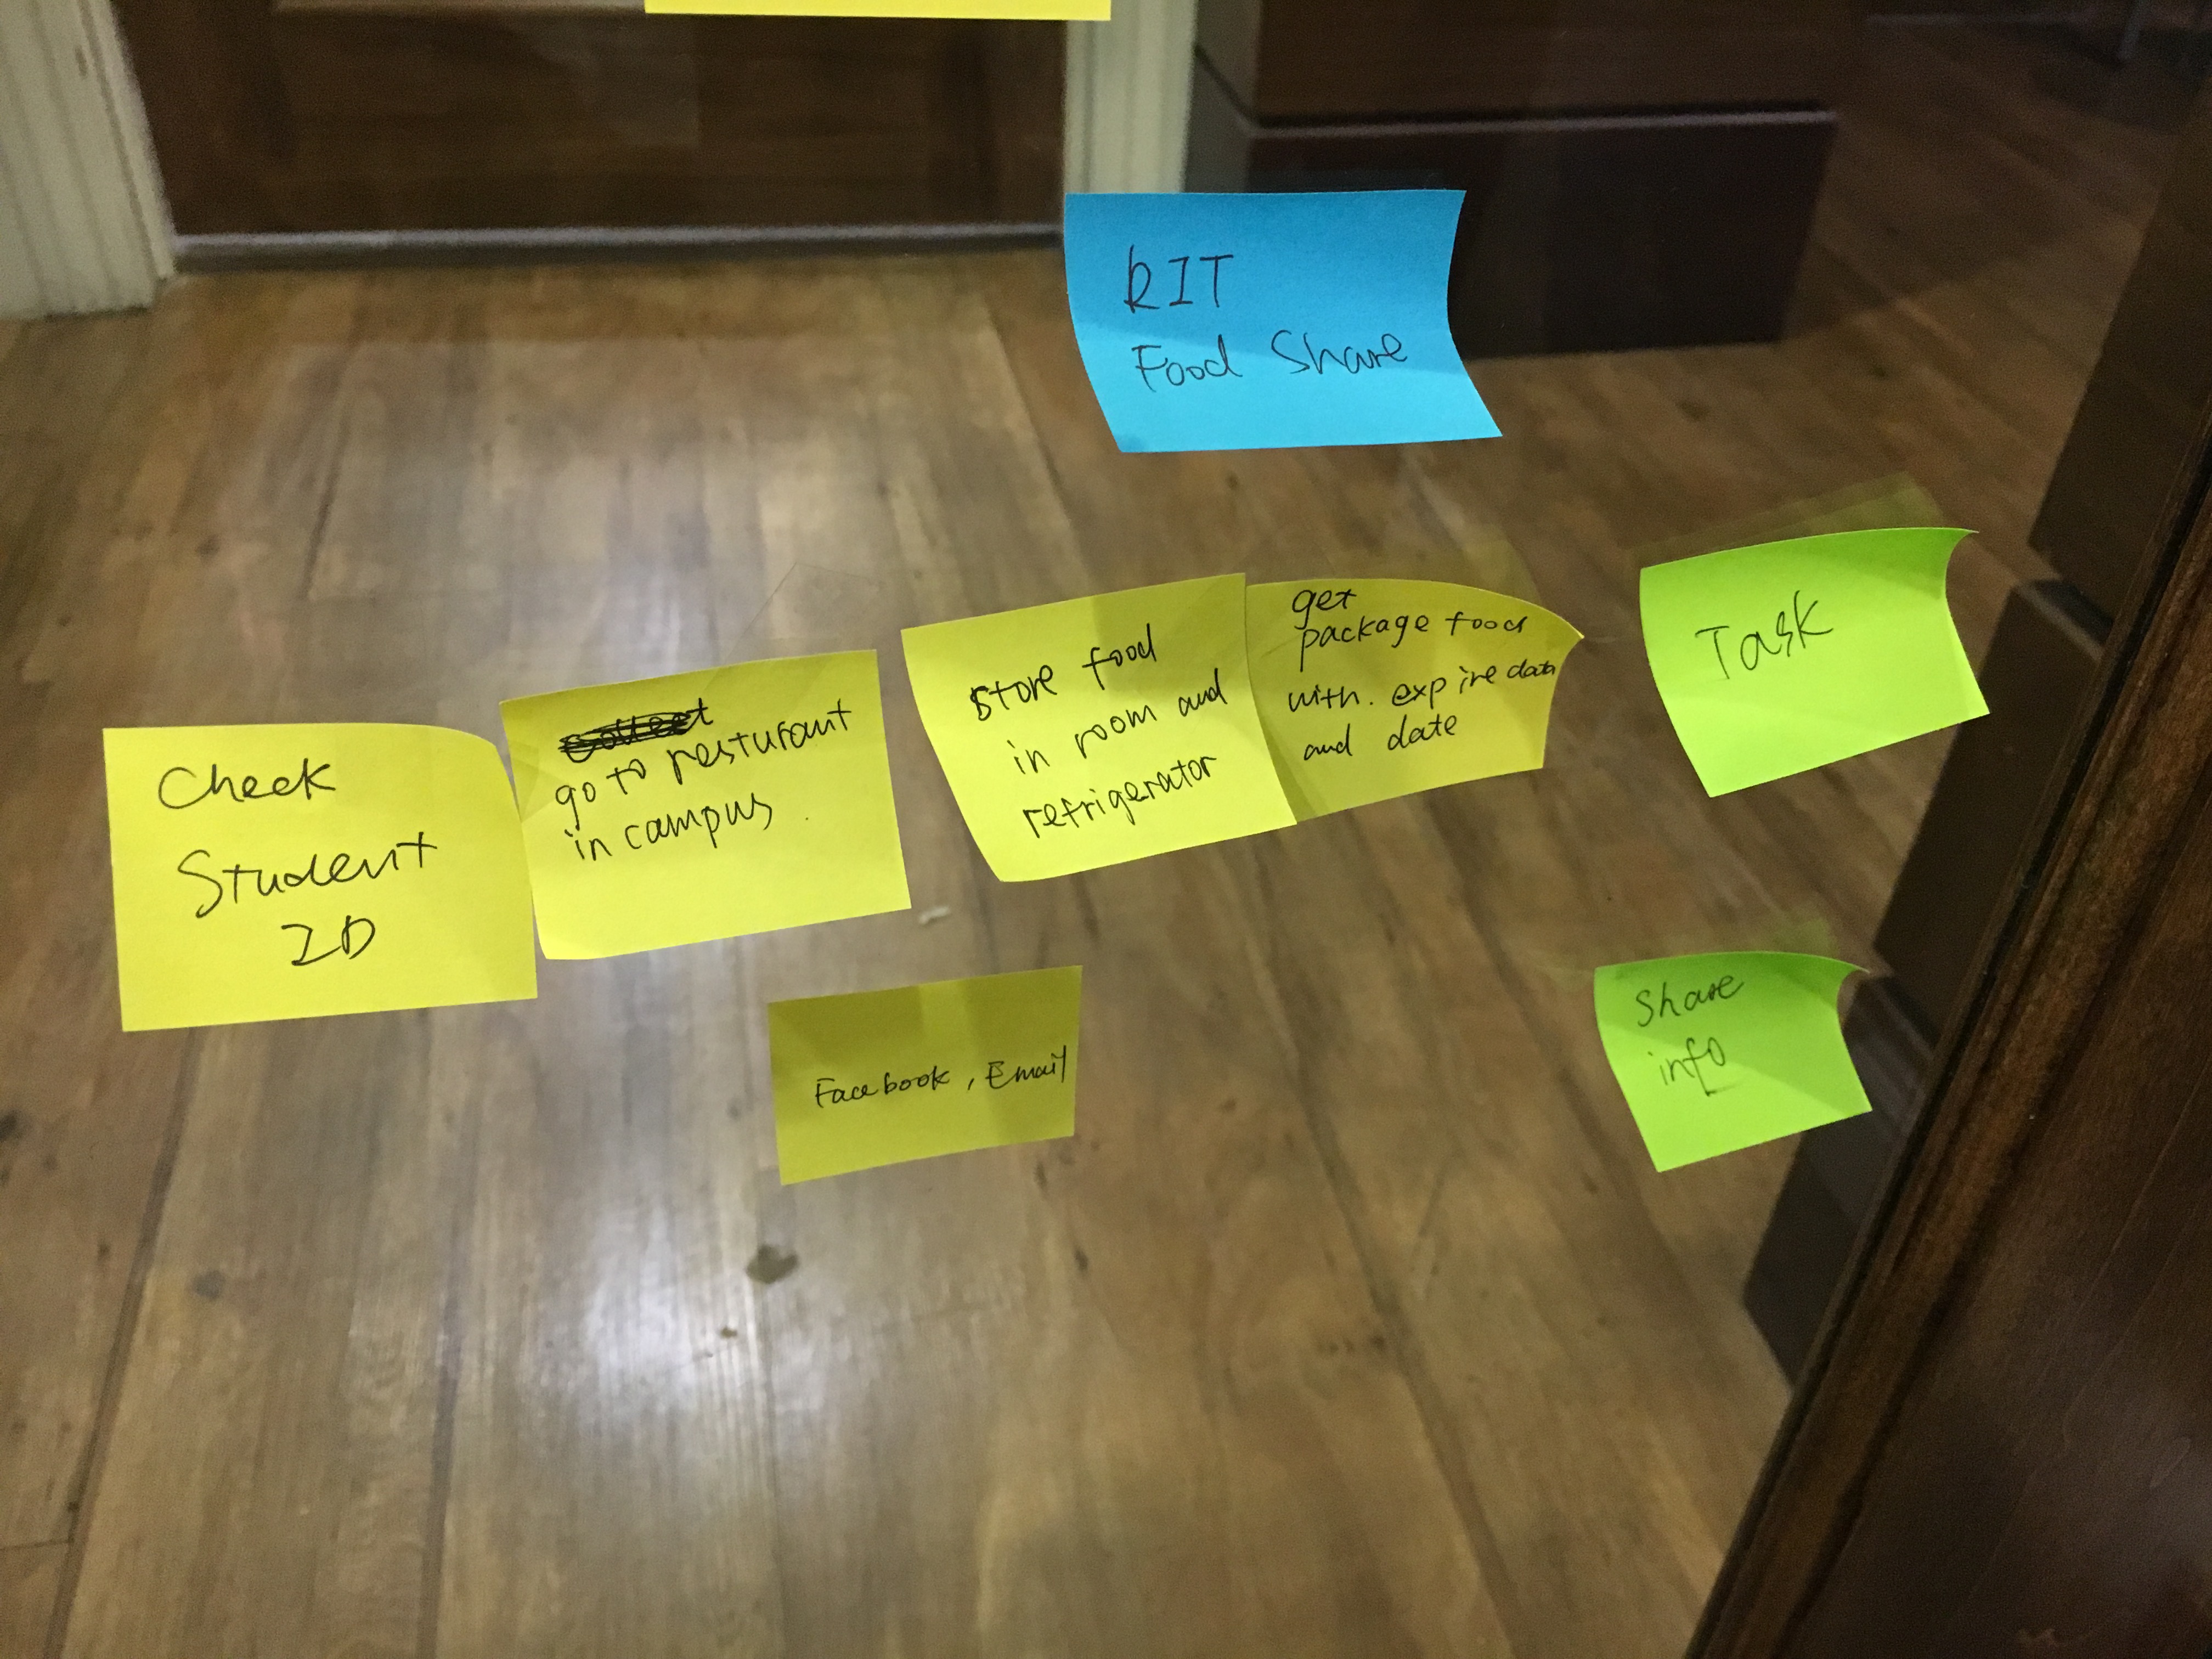 RIT
Food Share
Check
Student
ID
go to resturant
in campus.
store food
in room and
refrigerator
get
package food
with. expire data
and date
Task
Facebook, Email
Share
info